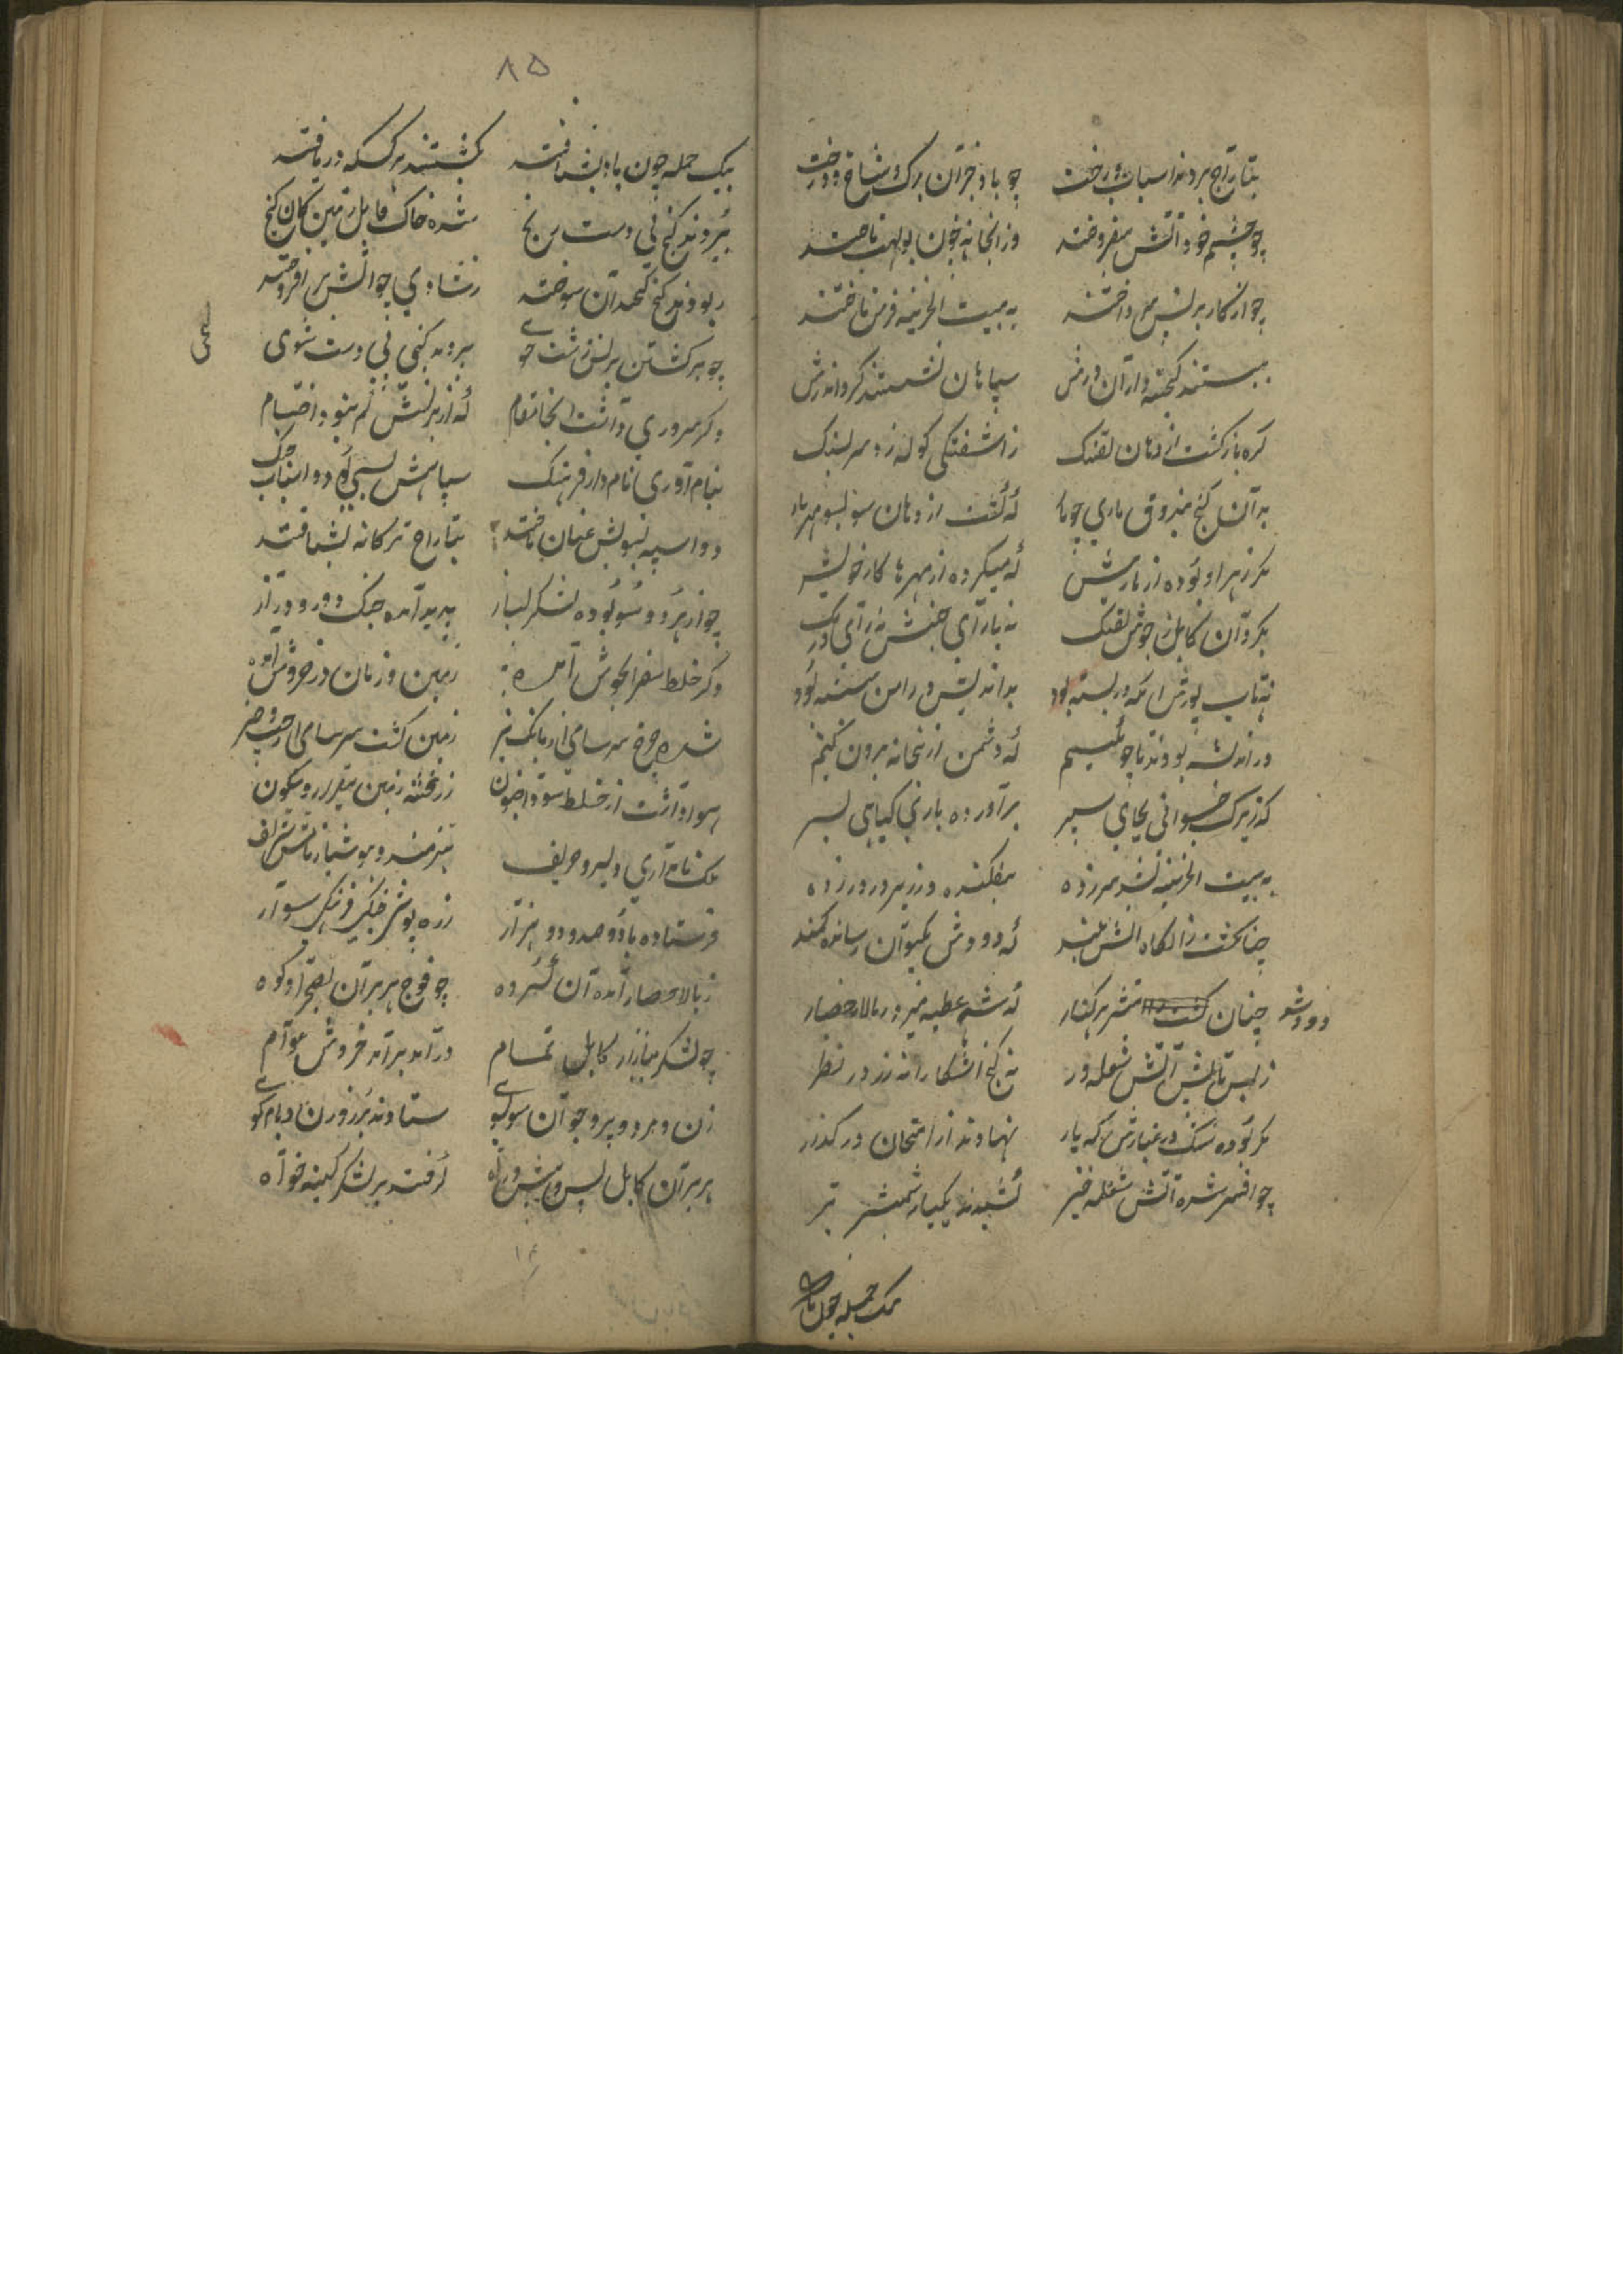 بتاراج بردند اسباب و رخت چو باد خزان برک و شاخ درخت
چو چشم خود آتش بیفروختند وز آنجا نه چون بولهب تاختند
چو از کار برنس بپرداختند به بیت الخزینه فرس تاختند
ببستند کنجینه داران درش سپاهان نشستند کرد اندرش
کره باز کشت از دهان تفنک ز آشفتکی کوله زد سر بسنک
بر آن کنج صندوق ماری چو مار که کشت از دهان سو بسو مهره بار
مکر زهر او بوده از مار بیش که میکرده از مهرها کار خویش
بکردان کابل ز جوش تفنک نه یارای جنبش نه رای درنک
نه تاب یورش زانکه در بسته بود
در اندیشه بودند تا چون کنیم که دشمن ازین خانه بیرون کنیم
که زیرک جوانی بجای سپر برآورده بار کیاهی بسر
به بیت الخزینه بشد سر زده بیفکنده در زیر در در زده
چنانکشت زان کاه آتش بلند که دودش بکیوان رسانده کمند
دودش چنان منتشر هر کنار که شب خیمه زد بر بالاحصار
ز بس تابش آتش شعله ور نه کنج آشکارا نه زر در نظر
مکر بوده سنک در عیارش که یار نهادند از امتحان در کنار
چو افسرده شد آتش شعله خیز کشیدند یکباره شمشیر تیز
یک حمله چون باد
۸۵
بیک حمله چون باد بشتافتند بکشتند هر کس که دریافتند
ببردند کنج بی دست رنج شده خاک کابل زمین کان کنج
ربودند کنج کهن سوخته ز شادی چو آتش بر افروخته
چو بر کشتن برنس زشت خوی ببردند کنجی بی دست شوی
دکر سروری داشت آنجا مقام که از برنسش کم نبود احتشام
بنام آوری نام دار فرنک سپاهش بسی بود و اسباب جنک
دو اسپه بسویش عنان تافتند بتاراج ترکانه بشتافتند
چو از هر دو سو بوده لشکر بساز پدید آمده جنک دور و دراز
دکر خلط صفرا بجوش آمده زمین و زمان در خروش آمده
شده چرخ سرسامی از بانک تیز زمین کشت سرسامی از جست و خیز
هوا داشت از خلط سودا جنون ز رعشه زمین بیقرار و سکون
یک نام آوری دلیر و حریف هنرمند و هوشیار نامش شریف
فرستاده با دو صد و دو هزار زره پوش جنکی فرنکی سوار
ز بالاحصار آمده آن کروه چو فوج هژبران بصحرا و کوه
چو لشکر ببازار کابل تمام درآمد برآمد خروش عوام
زن و مرد و پیر و جوان سو بسوی ستادند بر روزن و بام کوی
هژبران کابل پس و پیش راه کرفتند بر لشکر کینه خواه